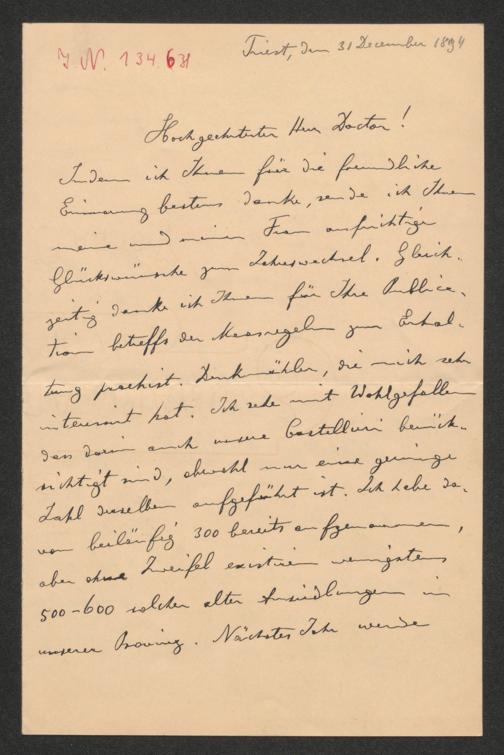 J. N. 134.631
Triest, den 31 December 1894
Hochgeehrtester Herr Doctor!
Indem ich Ihnen für die freundliche
Erinnerung bestens danke, sende ich Ihnen
meine und meiner Frau aufrichtige
Glückwünsche zum Jahreswechsel. Gleich-
zeitig danke ich Ihnen für Ihre Publica-
tion betreffs der Maasregeln zum Erhal-
tung praehist. Denkmähler, die mich sehr
interessirt hat. Ich sehe mit Wohlgefallen
dass darin auch unsere Castellieri berück-
sichtigt sind, obwohl nur eine geringe
Zahl derselben aufgeführt ist. Ich habe da-
von beiläufig 300 bereits aufgenommen,
aber ohne Zweifel existiren wenigstens
500-600 solcher alter Ansiedlungen in
unserer Provinz. Nächstes Jahr werde